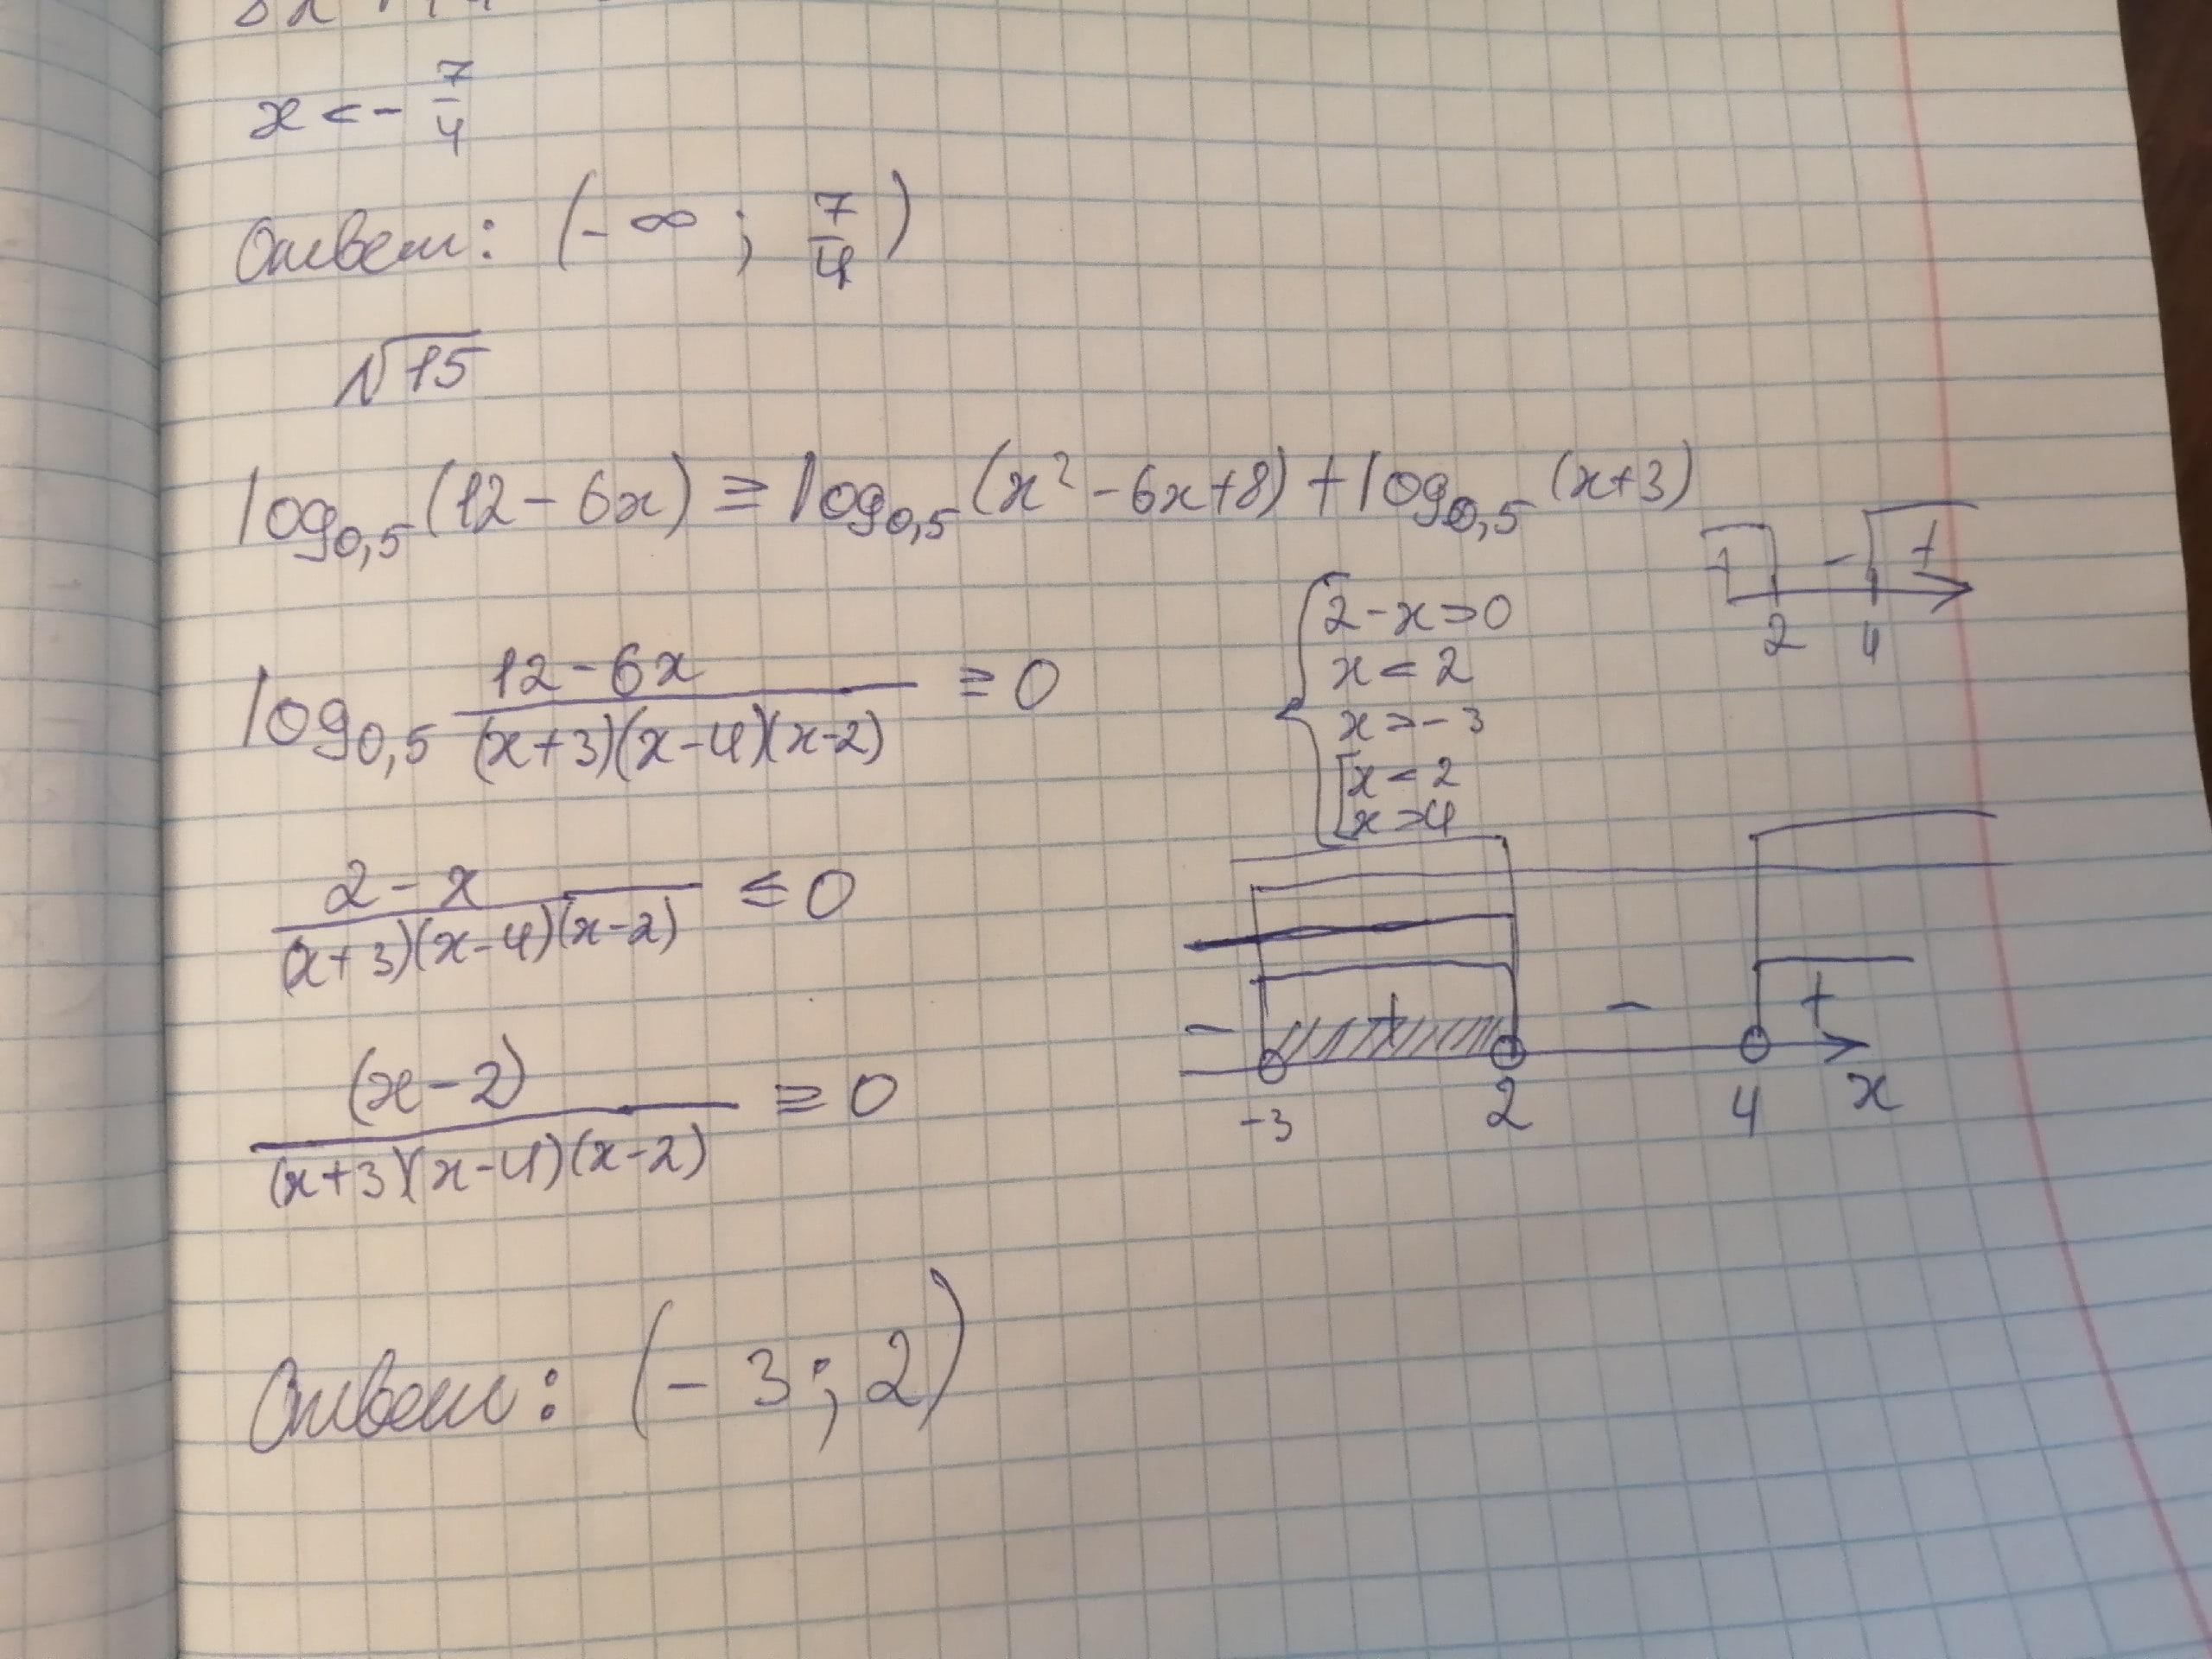 x < - 7/4
Ответ: (-∞ ; 7/4)
√15
log₀,₅(12-6x) ≥ log₀,₅(x²-6x+8)+log₀,₅(x+3)
+ - +
2 4
log₀,₅ (12-6x)/((x+3)(x-4)(x-2)) ≥ 0
{ 2-x>0
x<2
x>-3
[ x<2
x>4
(2-x)/((x+3)(x-4)(x-2)) ≤ 0
- + - +
-3 2 4 x
(x-2)/((x+3)(x-4)(x-2)) ≥ 0
Ответ: (-3; 2)